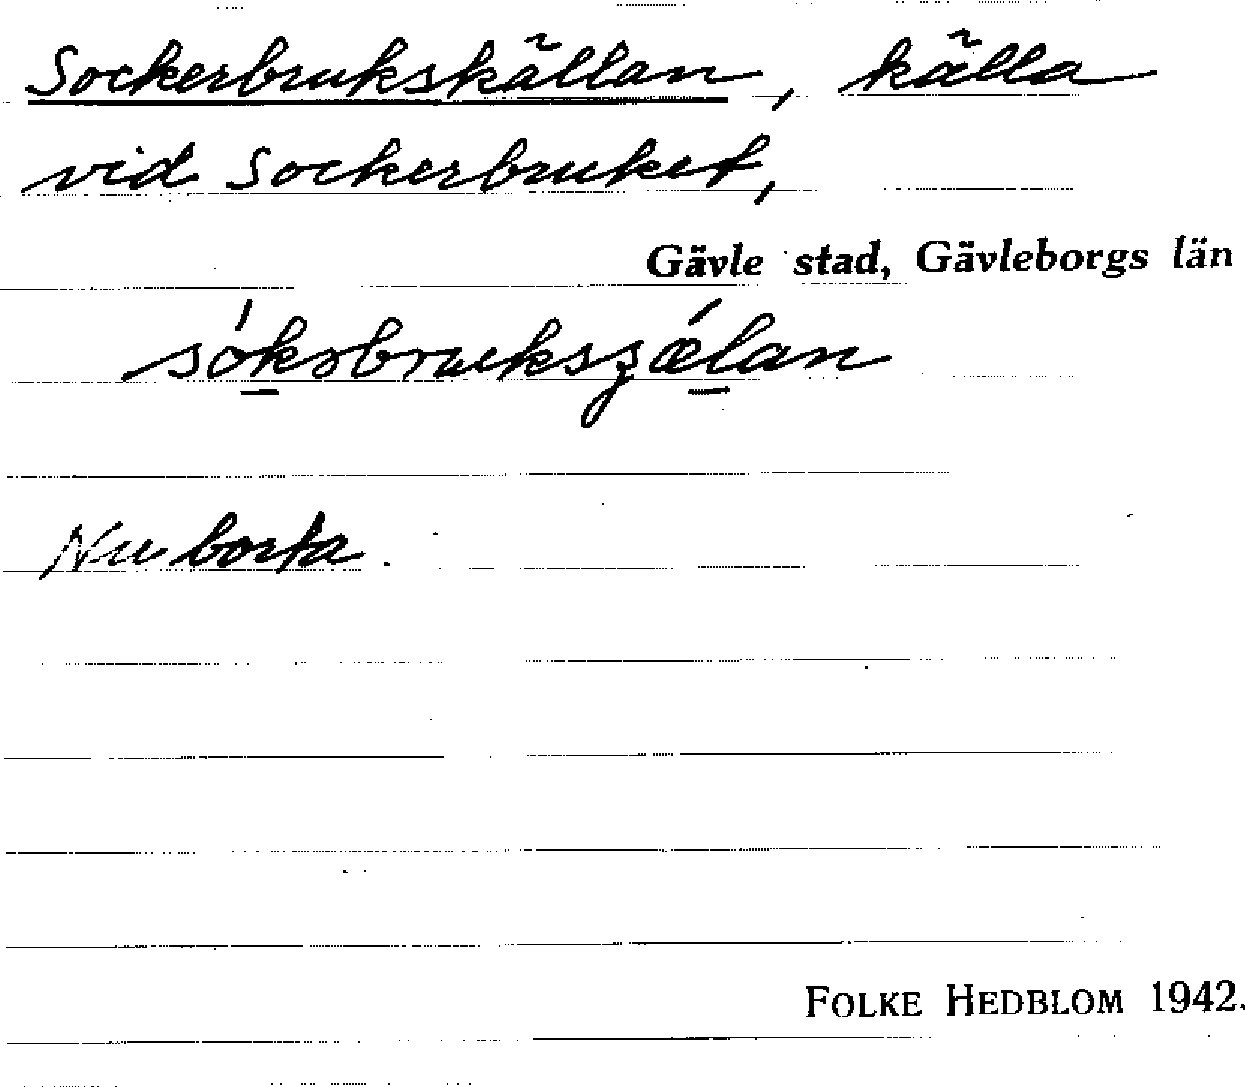 Sockerbrukskällan, källa
vid Sockerbruket,
Gävle stad, Gävleborgs län
Nu borta.
FOLKE HEDBLOM 1942.